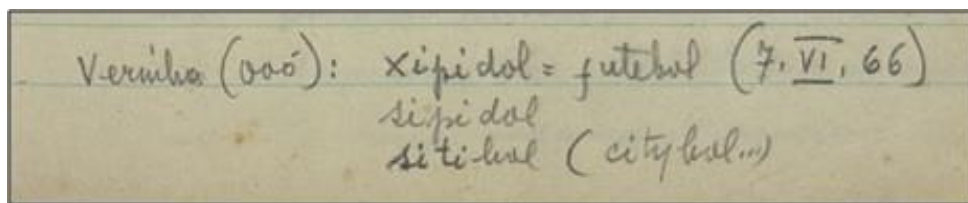 Verinha (ooó): xipidol = futebol (7. VI. 66)
sipidol
sitibol (citybol...)